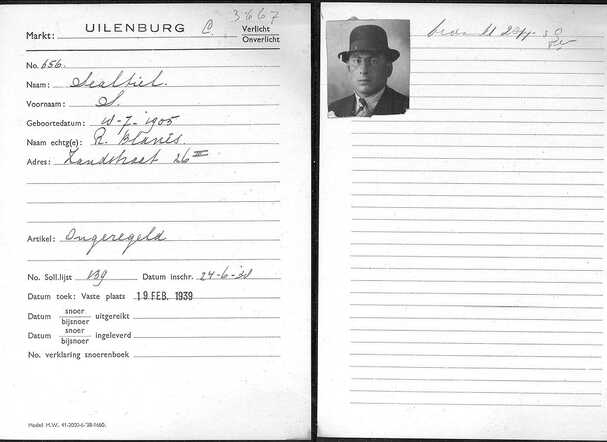 3667
Markt: UILENBURG C. Verlicht
Onverlicht
No. 656.
Naam: Sealtiel.
Voornaam: S.
Geboortedatum: -7-1905
Naam echtg(e): R. Blanes.
Adres: Zandstraat 26 III
Artikel: Ongeregeld
No. Soll.lijst 139 Datum inschr. 24-6-'31
Datum toek: Vaste plaats 19 FEB. 1939
Datum snoer
bijsnoer uitgereikt
Datum snoer
bijsnoer ingeleverd
No. verklaring snoerenboek
Model M.W. 41-2000-6-'38-1660.